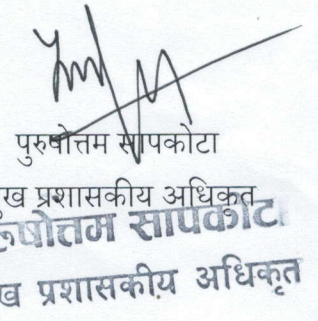 पुरुषोत्तम सापकोटा
ुख प्रशासकीय अधिकृत
रुषोत्तम सापकोटा
ख प्रशासकीय अधिकृत